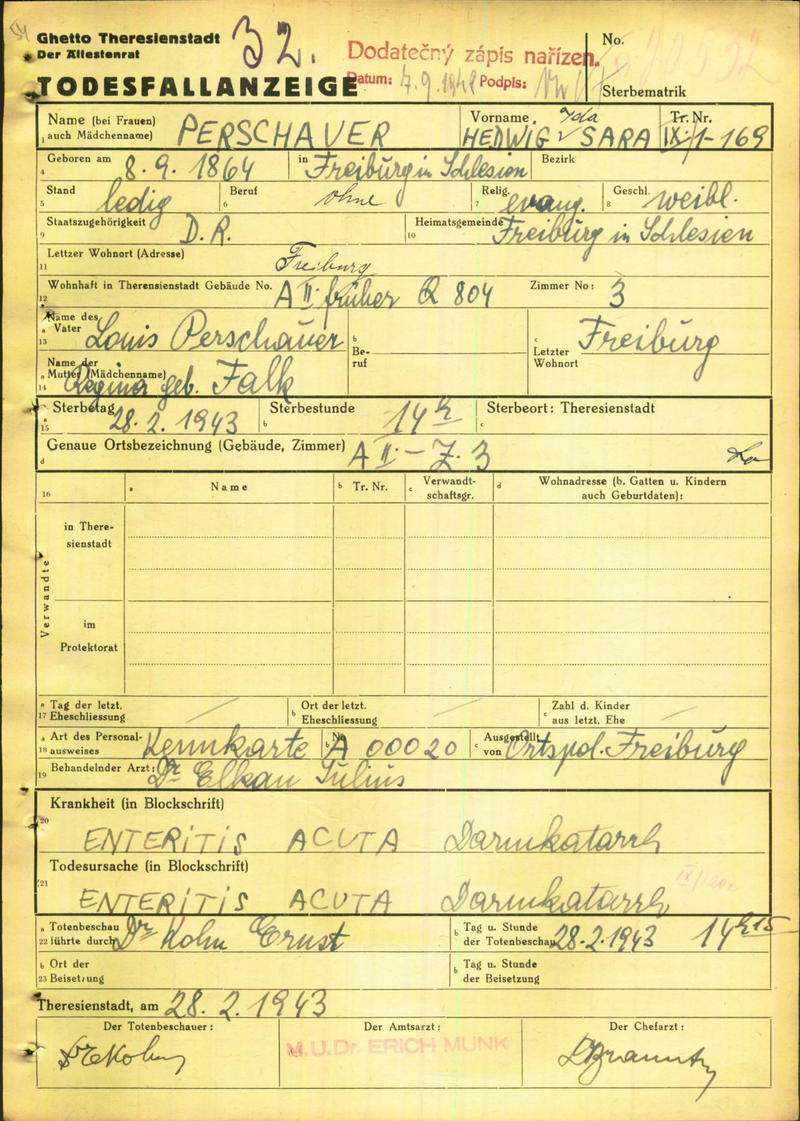 54
Ghetto Theresienstadt
Der Ältestenrat
32.
Dodatečný zápis nařízen.
Datum: 7.9.1948 Podpis:
No.
TODESFALLANZEIGE
Sterbematrik
Name (bei Frauen) PERSCHAUER Vorname Ida Tr. Nr.
1 auch Mädchenname) HEDWIG SARA IX/1-169
4 Geboren am 8.9.1864 in Freiburg in Schlesien Bezirk
5 Stand ledig 6 Beruf ohne 7 Relig. evang. 8 Geschl. weibl.
9 Staatszugehörigkeit D.R. 10 Heimatsgemeinde Freiburg in Schlesien
11 Lettzer Wohnort (Adresse) Freiburg
12 Wohnhaft in Theresienstadt Gebäude No. A II früher Q 804 Zimmer No: 3
13 a Name des Vater Louis Perschauer b Beruf c Letzter Wohnort Freiburg
14 a Name der Mutter (Mädchenname) Regina geb. Falk
15 a Sterbetag 28.2.1943 b Sterbestunde 14h c Sterbeort: Theresienstadt
d Genaue Ortsbezeichnung (Gebäude, Zimmer) A II – Z. 3
16 a Name b Tr. Nr. c Verwandtschaftsgr. d Wohnadresse (b. Gatten u. Kindern auch Geburtdaten):
Verwandte
in Theresienstadt
im Protektorat
17 a Tag der letzt. Eheschliessung b Ort der letzt. Eheschliessung c Zahl d. Kinder aus letzt. Ehe
18 a Art des Personalausweises Kennkarte b No A 00020 c Ausgestellt von Ortspol. Freiburg
19 Behandelnder Arzt: Dr Elkan Julius
20 Krankheit (in Blockschrift)
ENTERITIS ACUTA Darmkatarrh
21 Todesursache (in Blockschrift)
ENTERITIS ACUTA Darmkatarrh
22 a Totenbeschau führte durch Dr Kohn Ernst b Tag u. Stunde der Totenbeschau 28.2.1943 14h15
23 b Ort der Beisetzung b Tag u. Stunde der Beisetzung
Theresienstadt, am 28.2.1943
Der Totenbeschauer: Der Amtsarzt: Der Chefarzt:
M.U.Dr. ERICH MUNK